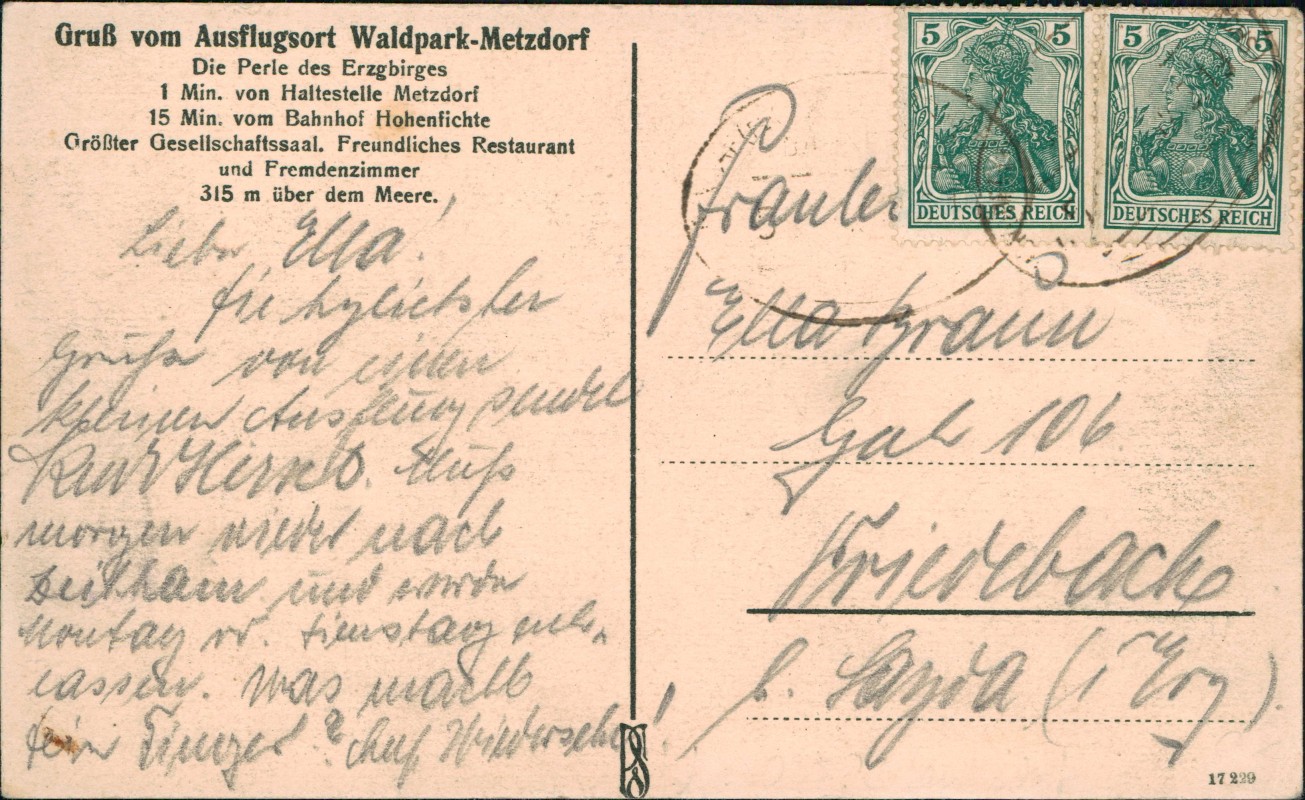 Gruß vom Ausflugsort Waldpark-Metzdorf
Die Perle des Erzgbirges
1 Min. von Haltestelle Metzdorf
15 Min. vom Bahnhof Hohenfichte
Größter Gesellschaftssaal. Freundliches Restaurant
und Fremdenzimmer
315 m über dem Meere.
Liebe Ella!
Die
Grüße von einen
kleinen Ausflug sendet
Kurt Muß
morgen wieder nach
und werde
Montag od. Dienstag
lassen. Was macht
Dein Finger? Auf Wiedersehn!
5 5
DEUTSCHES REICH
5 5
DEUTSCHES REICH
Fraulei
Ella Braun
106
Friedebach
b. Sayda (i Erzg).
17 229